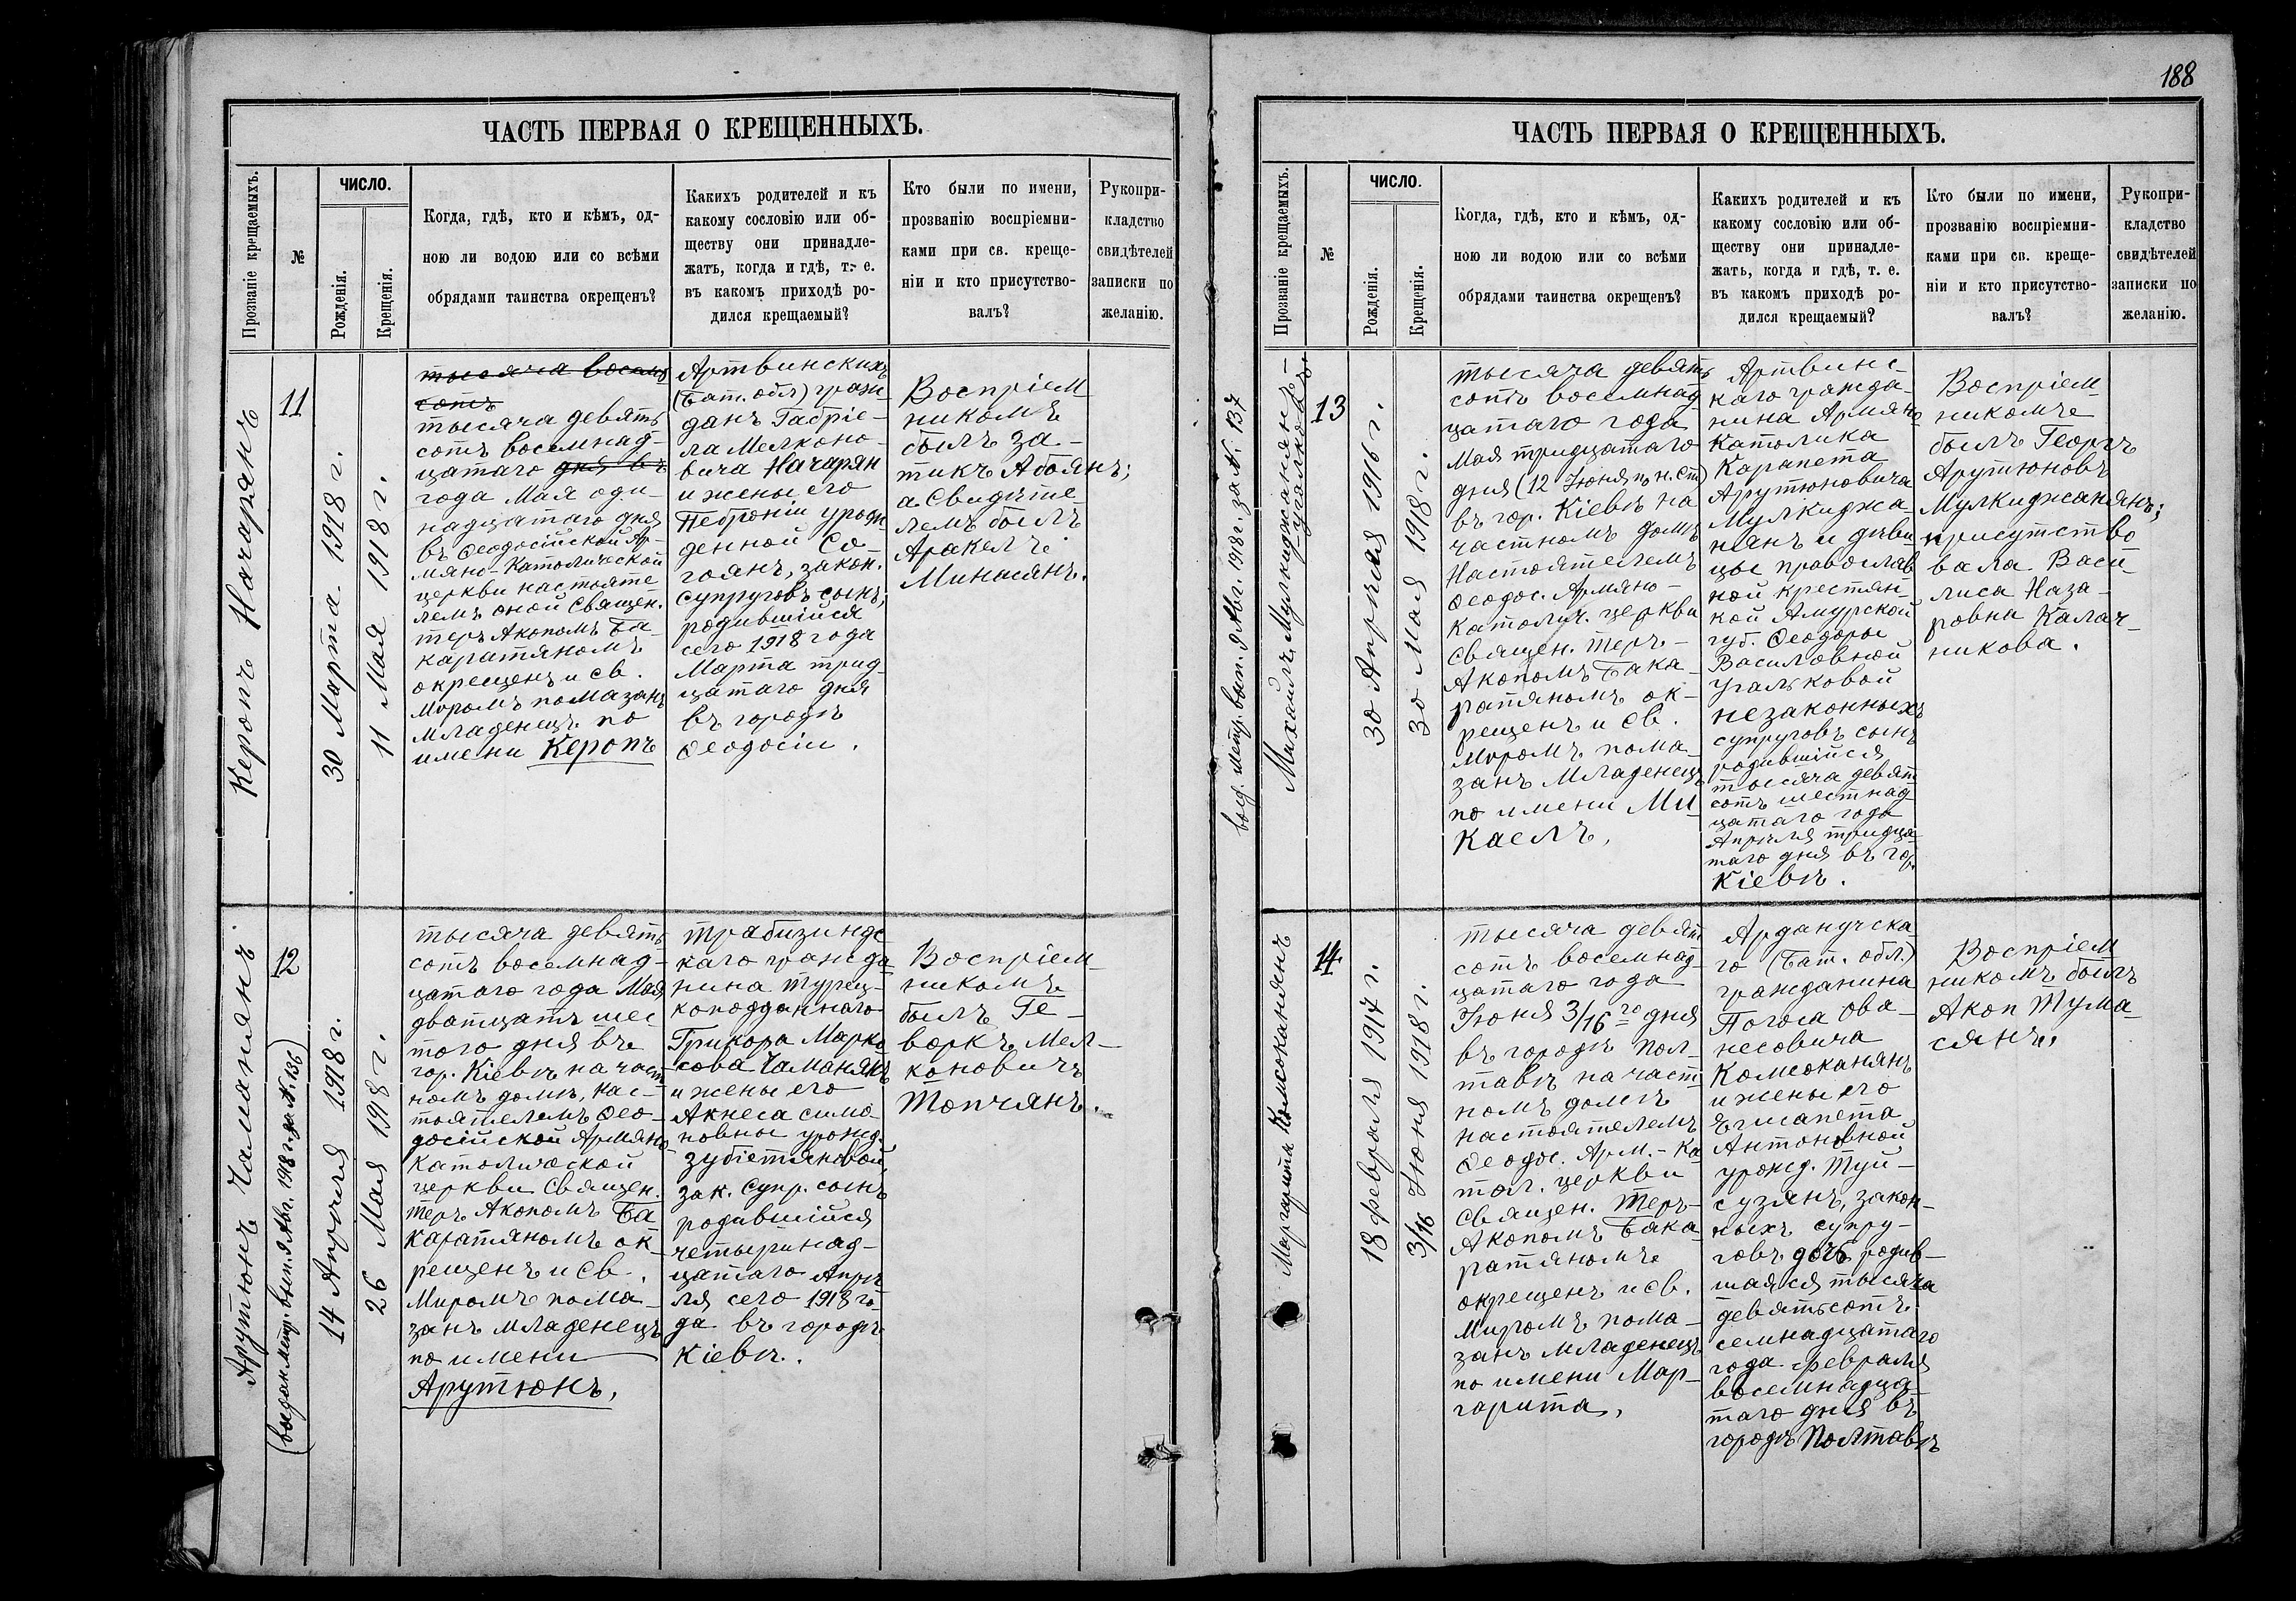 188
ЧАСТЬ ПЕРВАЯ О КРЕЩЕННЫХЪ.
Прозваніе крещаемыхъ.
№
ЧИСЛО.
Рожденія.
Крещенія.
Когда, гдѣ, кто и кѣмъ, од-
ною ли водою или со всѣми
обрядами таинства окрещенъ?
Какихъ родителей и къ
какому сословію или об-
ществу они принадле-
жатъ, когда и гдѣ, т. е.
въ какомъ приходѣ ро-
дился крещаемый?
Кто были по имени,
прозванію воспріемни-
ками при св. креще-
ніи и кто присутство-
валъ?
Рукопри-
кладство
свидѣтелей
записки по
желанію.
Керопъ Начарянъ
11
30 Марта 1918 г.
11 Мая 1918 г.
тысяча восемь
сотъ
тысяча девять
сотъ восемнад-
цатаго дня въ
года Мая оди-
надцатаго дня
въ Ѳеодосійской Ар-
мяно-Католической
церкви настояте
лемъ оной Священ.
теръ Акопомъ Ба-
каратяномъ
окрещенъ и св.
Мѵромъ помазанъ
младенецъ по
имени Керопъ
Артвинскихъ
(Бат. обл) граж
данъ Габріе-
ла Мелконо-
вича Начарян
и жены его
Пебронiи урож
денной Со-
гоянъ, закон.
супруговъ сынъ,
родившійся
сего 1918 года
Марта трид-
цатаго дня
въ городѣ
Ѳеодосіи.
Воспріем-
никомъ
былъ За-
тикъ Абоянъ;
а Свидѣте-
лемъ былъ
Аракелъ
Минасянъ.
Арутюнъ Чаманянъ
(выдан метр. вып. 9 Авг. 1918 г. за №. 136)
12
14 Апрѣля 1918 г.
26 Мая 1918 г.
тысяча девять
сотъ восемнад-
цатаго года Мая
двадцать шес
того дня въ
гор. Кіевѣ на част
номъ домѣ, нас-
тоятелемъ Ѳео-
досійской Армяно
Католической
церкви Священ.
Теръ Акопомъ Ба
каратяномъ ок-
рещенъ и Св.
Миромъ пома-
занъ младенецъ
по имени
Арутюнъ,
Трабизиндс
каго гражда
нина турец-
коподданнаго
Грикора Марко
сова Чаманянъ
и жены его
Акнеса симо-
новное урожд.
Зубіетяновой
зак. Супр. сынъ
родившійся
четыринад-
цатаго Апрѣ
ля сего 1918 го
да въ городѣ
Кіевѣ.
Воспріем-
никомъ
былъ Ге-
воркъ Мел-
коновичъ
Топчянъ.
ЧАСТЬ ПЕРВАЯ О КРЕЩЕННЫХЪ.
Прозваніе крещаемыхъ.
№
ЧИСЛО.
Рожденія.
Крещенія.
Когда, гдѣ, кто и кѣмъ, од-
ною ли водою или со всѣми
обрядами таинства окрещенъ?
Какихъ родителей и къ
какому сословію или об-
ществу они принадле-
жатъ, когда и гдѣ, т. е.
въ какомъ приходѣ ро-
дился крещаемый?
Кто были по имени,
прозванію воспріемни-
ками при св. креще-
ніи и кто присутство-
валъ?
Рукопри-
кладство
свидѣтелей
записки по
желанію.
выд. метр. вып. 9 Авг. 1918 г. за №. 137
Михаилъ Мулкиджанянъ-
-угалковъ.
13
30 Апрѣля 1916 г.
30 Мая 1918 г.
тысяча девять
сотъ восемнад
цатаго года
Мая тридцатаго
дня (12 Іюня по н. Ст)
въ гор. Кіевѣ на
частномъ домѣ
Настоятелемъ
Ѳеодос. Армяно-
Католич. церкви
Священ. теръ-
Акопомъ Бака-
ратяномъ ок-
рещенъ и Св.
Мѵромъ пома-
занъ Младенецъ
по имени Ми-
каелъ,
Артвинс-
каго гражда-
нина Армяно
Католика
Карапета
Арутюновича
Мулкиджа-
нянъ и дѣви
цы православ
ной крестян-
кой Амурской
губ. Ѳеодоры
Василовной
Угальковой
незаконныхъ
супруговъ сынъ
родившійся
тысяча девят
сотъ шестнад
цатаго года
Апрѣля тридца
таго дня въ гор.
Кіевѣ.
Воспріем-
никомъ
былъ Георгъ
Арутюновъ
Мулкиджанянъ;
присутство
вала Васи-
лиса Наза-
ровна Калач-
никова.
Маргарита Комсоканянъ
14
18 февраля 1917 г.
3/16 Іюня 1918 г.
тысяча девят
сотъ восемнад-
цатаго года
Іюня 3/16 го дня
въ городѣ Пол-
тавѣ на част
номъ домѣ
настоятелемъ
Ѳеодос. Арм.-Ка
тол. церкви
Священ. Теръ-
Акопомъ Бака-
ратяномъ
окрещенъ и Св.
Миромъ пома-
занъ младенецъ
по имени Мар-
гарита,
Ардануческа-
го (Бат. обл.)
гражданина
Погоса Ова-
несовича
Комсоканянъ
и жены его
Егисапета
Антоновной
урожд. Туй-
сузянъ, закон-
ныхъ супру-
говъ дочь родив-
шаяся тысяча
девятьсотъ
семнадцатаго
года февраля
восемнадца-
таго дня въ
городѣ Полтавѣ
Воспріем
никомъ былъ
Акоп Тума-
сянъ.